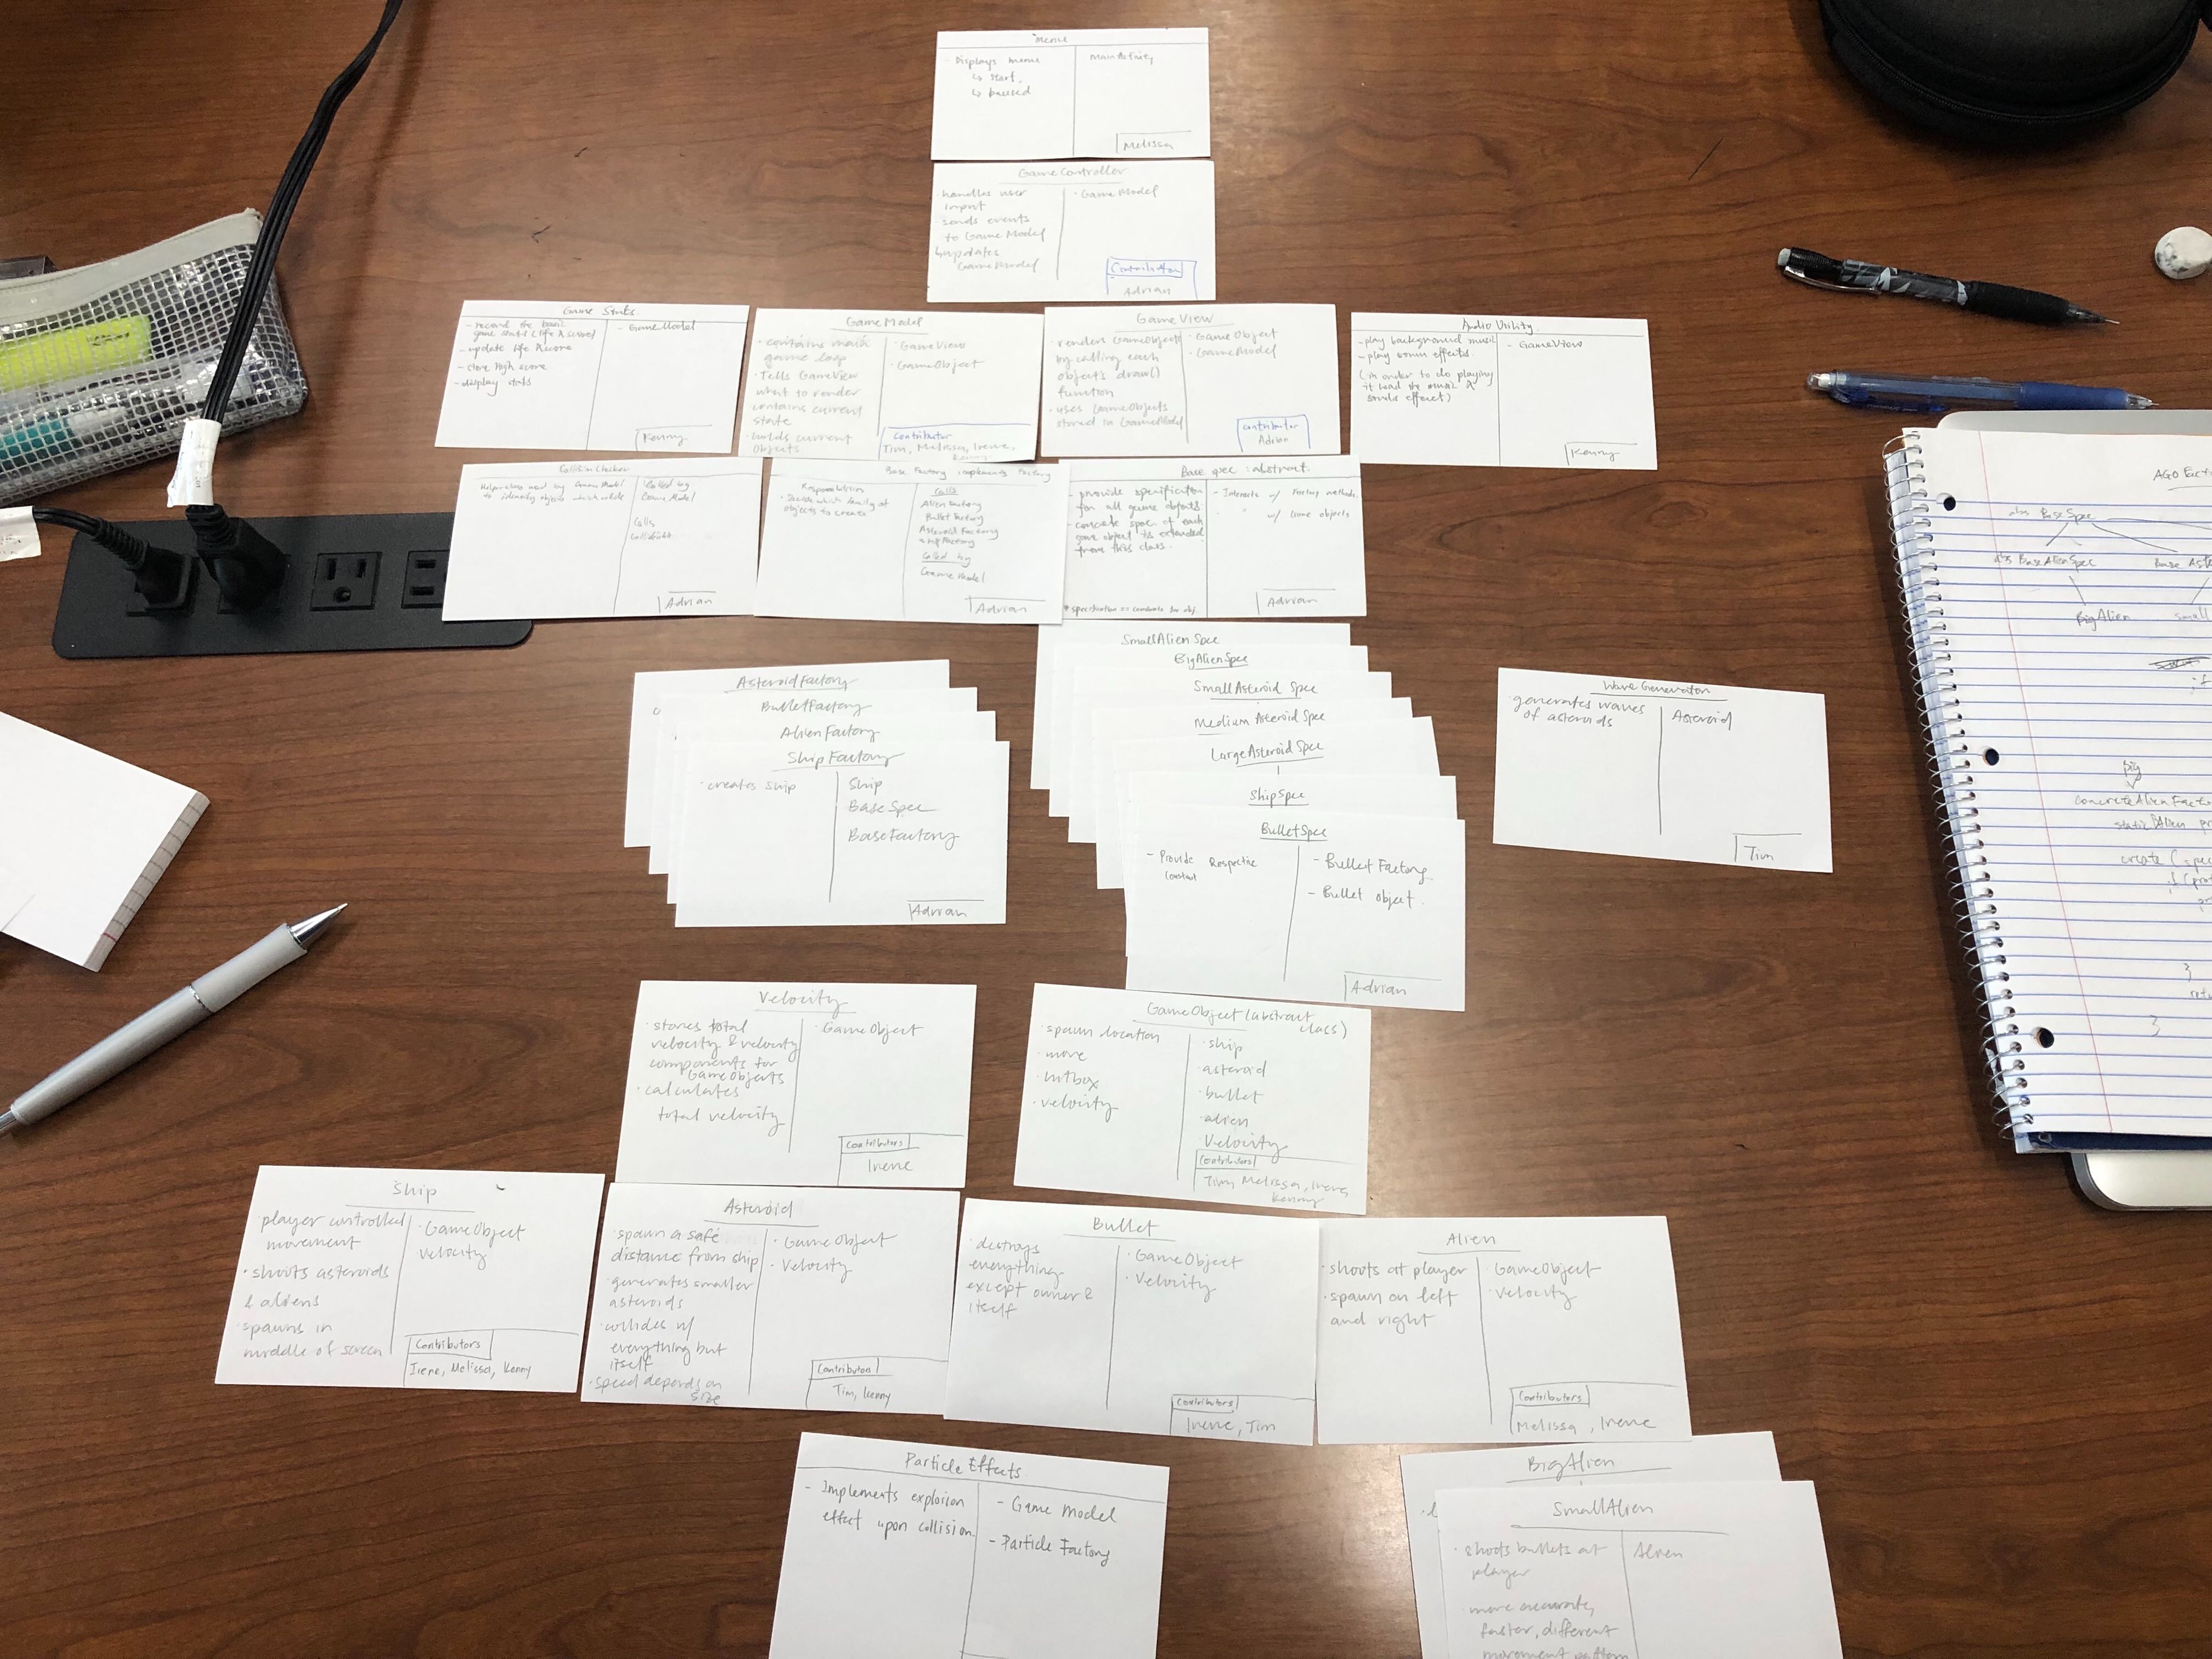 Menu
- Displays menu
↳ start,
↳ paused
MainActivity
Melissa
GameController
· handles user
input
· sends events
to Game Model
↳ updates
GameModel
· GameModel
Contributor
Adrian
Game Stats
- record the basic
game stats (life & score)
- update life & score
- store high score
- display stats
- GameModel
Kenny
GameModel
· contains main
game loop
· Tells GameView
what to render
contains current
state
· holds current
objects
· GameView
· GameObject
Contributor
Tim, Melissa, Irene,
Kenny
GameView
· renders GameObjects
by calling each
object's draw()
function
· uses GameObjects
stored in GameModel
· GameObject
· GameModel
Contributor
Adrian
Audio Utility
- play background music
- play sound effects.
(in order to do playing
it load the music &
sounds effect)
- GameView
Kenny
Collision Checker
Helper class used by GameModel
to identify objects which collide
Called by
GameModel
Calls
Adrian
Base Factory implements Factory
Responsibilities
· Decide which family of
objects to create
Calls
Alien Factory
Bullet Factory
Asteroid Factory
Ship Factory
Called by
Game Model
Adrian
Base spec : abstract.
- provide specification
for all game objects
- concrete spec. of each
game object is extended
from this class.
- Interacts w/ Factory methods.
" w/ Game objects
* specification == constants for obj.
Adrian
AsteroidFactory
BulletFactory
AlienFactory
ShipFactory
· creates ship
Ship
BaseSpec
BaseFactory
Adrian
SmallAlien Spec
BigAlienSpec
SmallAsteroid Spec
Medium Asteroid Spec
LargeAsteroid Spec
ShipSpec
BulletSpec
- Provide Respective
Constant
- Bullet Factory
- Bullet object.
Adrian
Wave Generator
· generates waves
of asteroids
Asteroid
Tim
Velocity
· stores total
velocity & velocity
components for
GameObjects
· calculates
total velocity
· GameObject
Contributors
Irene
GameObject (abstract
class)
· spawn location
· move
· hitbox
· velocity
· ship
· asteroid
· bullet
· alien
· Velocity
Contributors
Tim, Melissa, Irene,
Kenny
Ship
· player controlled
movement
· shoots asteroids
& aliens
· spawns in
middle of screen
· GameObject
velocity
Contributors
Irene, Melissa, Kenny
Asteroid
· spawn a safe
distance from ship
· generates smaller
asteroids
· collides w/
everything but
itself
· speed depends on
size
· GameObject
· Velocity
Contributors
Tim, Kenny
Bullet
· destroys
everything
except owner &
itself
· GameObject
· Velocity
Contributors
Irene, Tim
Alien
· shoots at player
· spawn on left
and right
· GameObject
· Velocity
Contributors
Melissa, Irene
Particle Effects
- Implements explosion
effect upon collision.
- Game Model
- Particle Factory
BigAlien
SmallAlien
· shoots bullets at
player
· more accurate,
faster, different
movement pattern
Alien
AGO Facto
abs BaseSpec
abs BaseAlienSpec
Base Ast
BigAlien
small
big
ConcreteAlienFacto
static Alien pr
create (spec
if (prot
}
retu
}